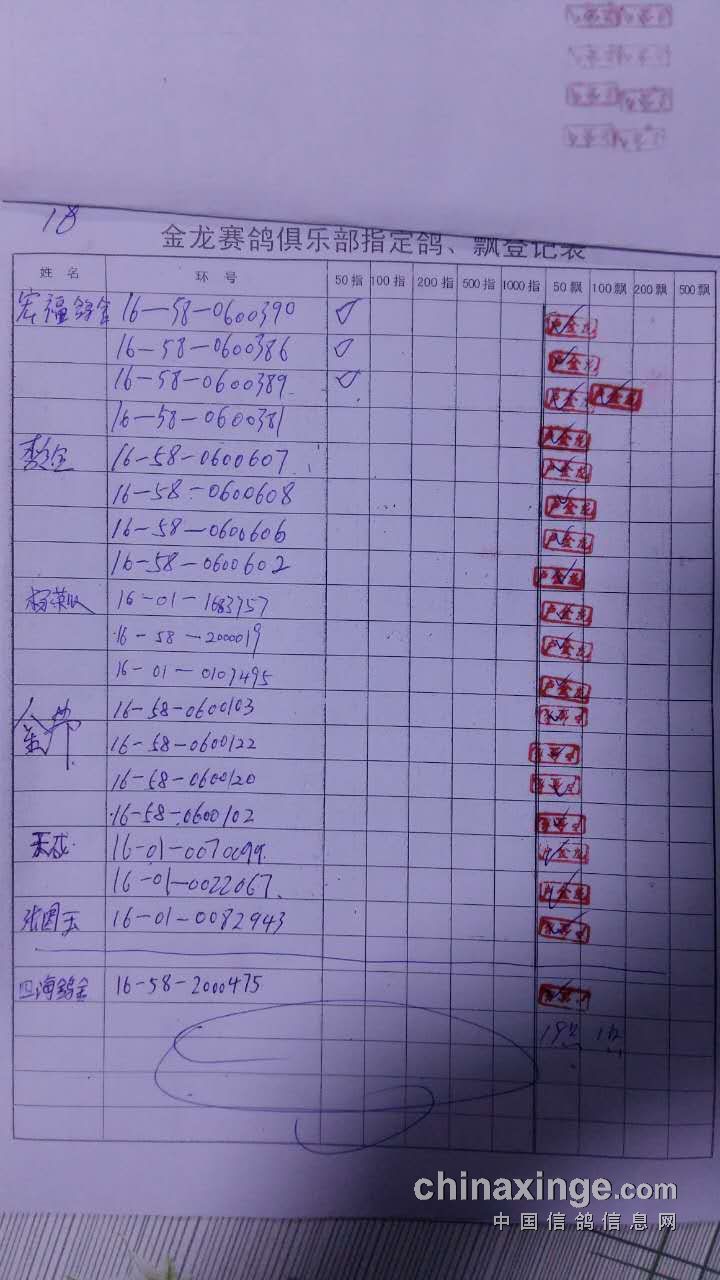 18
金龙赛鸽俱乐部指定鸽、飘登记表
姓名 环号 50指 100指 200指 500指 1000指 50飘 100飘 200飘 500飘
宏福鸽舍 16-58-0600390 √
16-58-0600386 √
16-58-0600389 √
16-58-0600381
16-58-0600607
16-58-0600608
16-58-0600606
16-58-0600602
16-01-1683757
16-58-2000019
16-01-0107495
16-58-0600103
16-58-0600122
16-58-0600120
16-58-0600102
16-01-0070099
16-01-0022067
张国玉 16-01-0082943
四海鸽舍 16-58-2000475
chinaxinge.com
中国信鸽信息网